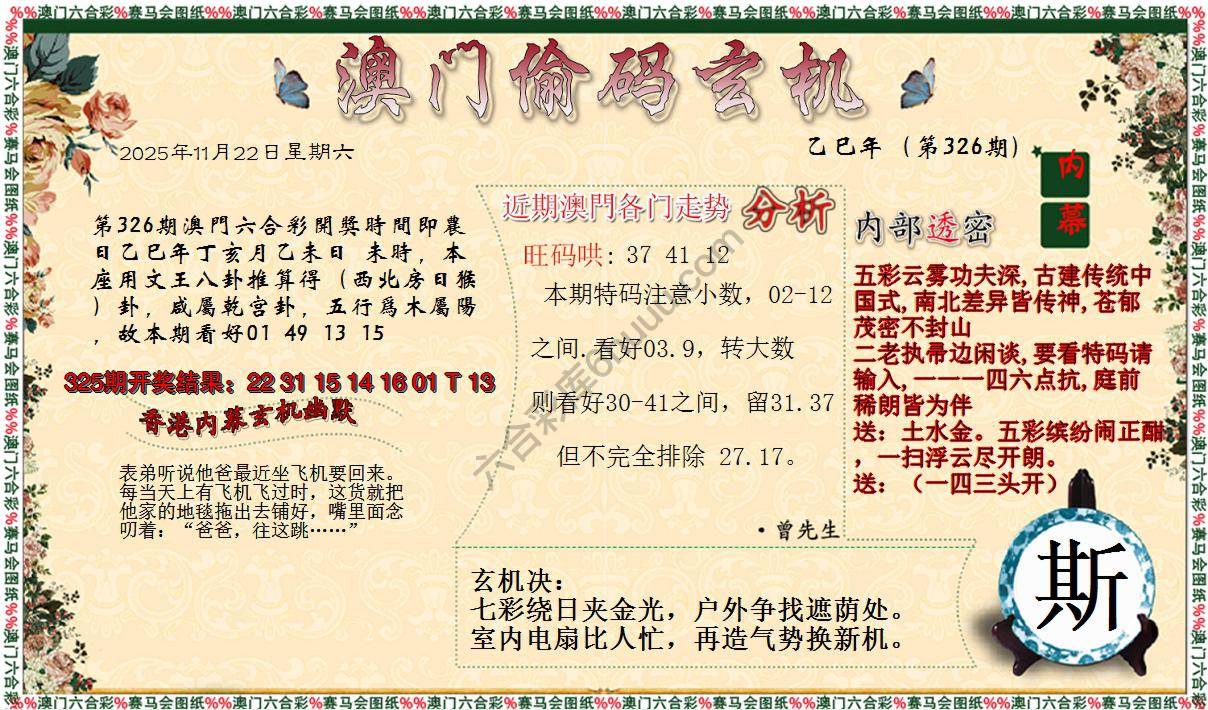 %%澳门六合彩%赛马会图纸%%澳门六合彩%赛马会图纸%%澳门六合彩%赛马会图纸%%澳门六合彩%赛马会图纸%%澳门六合彩%赛马会图纸%%
澳门偷码玄机
2025年11月22日星期六
乙巳年（第326期）
内
幕
第326期澳門六合彩開獎時間即農
日乙巳年丁亥月乙未日 未時，本
座用文王八卦推算得（西北房日猴
）卦，咸屬乾宫卦，五行爲木屬陽
，故本期看好01 49 13 15
325期开奖结果：22 31 15 14 16 01 T 13
香港内幕玄机幽默
表弟听说他爸最近坐飞机要回来。
每当天上有飞机飞过时，这货就把
他家的地毯拖出去铺好，嘴里面念
叨着：“爸爸，往这跳……”
近期澳門各门走势 分析
旺码哄: 37 41 12
本期特码注意小数，02-12
之间.看好03.9，转大数
则看好30-41之间，留31.37
但不完全排除 27.17。
·曾先生
内部透密
五彩云雾功夫深,古建传统中
国式,南北差异皆传神,苍郁
茂密不封山
二老执帚边闲谈,要看特码请
输入,一一一四六点抗,庭前
稀朗皆为伴
送：土水金。五彩缤纷闹正酣
，一扫浮云尽开朗。
送：（一四三头开）
玄机决：
七彩绕日夹金光，户外争找遮荫处。
室内电扇比人忙，再造气势换新机。
斯